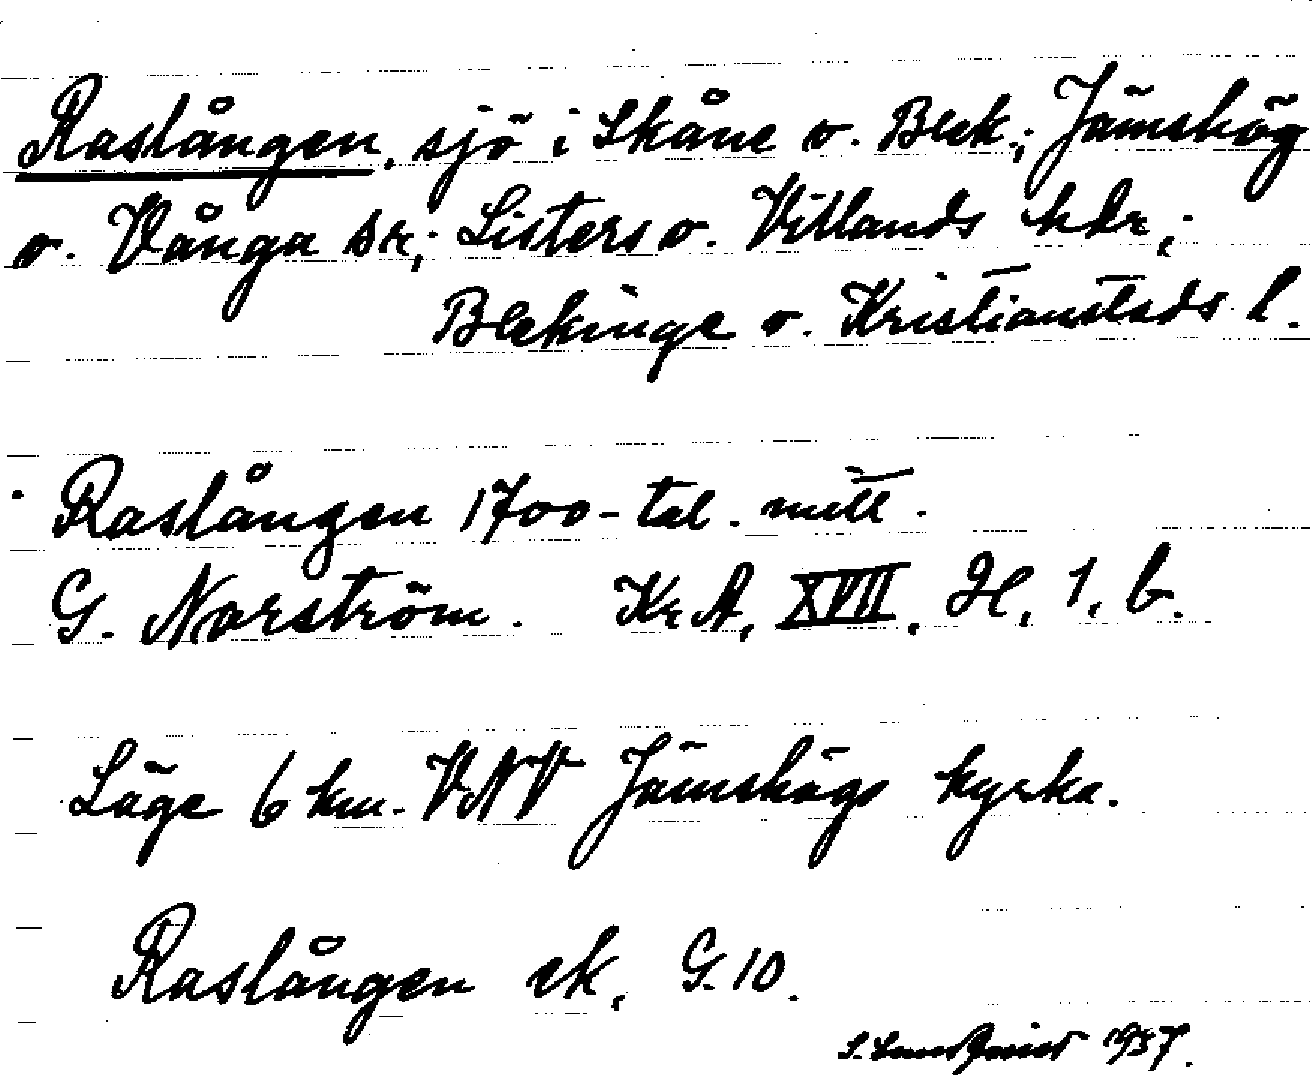 Raslången, sjö i Skåne o. Blek.; Jämshög
o. Vånga snr; Listers o. Villands hdr;
Blekinge o. Kristianstads l.
Raslången 1700-tal. mitt.
G. Norström. KrA, XVII, H, 1, b.
Läge 6 km. VNV Jämshögs kyrka.
Raslången ek, G. 10.
S. 1937.